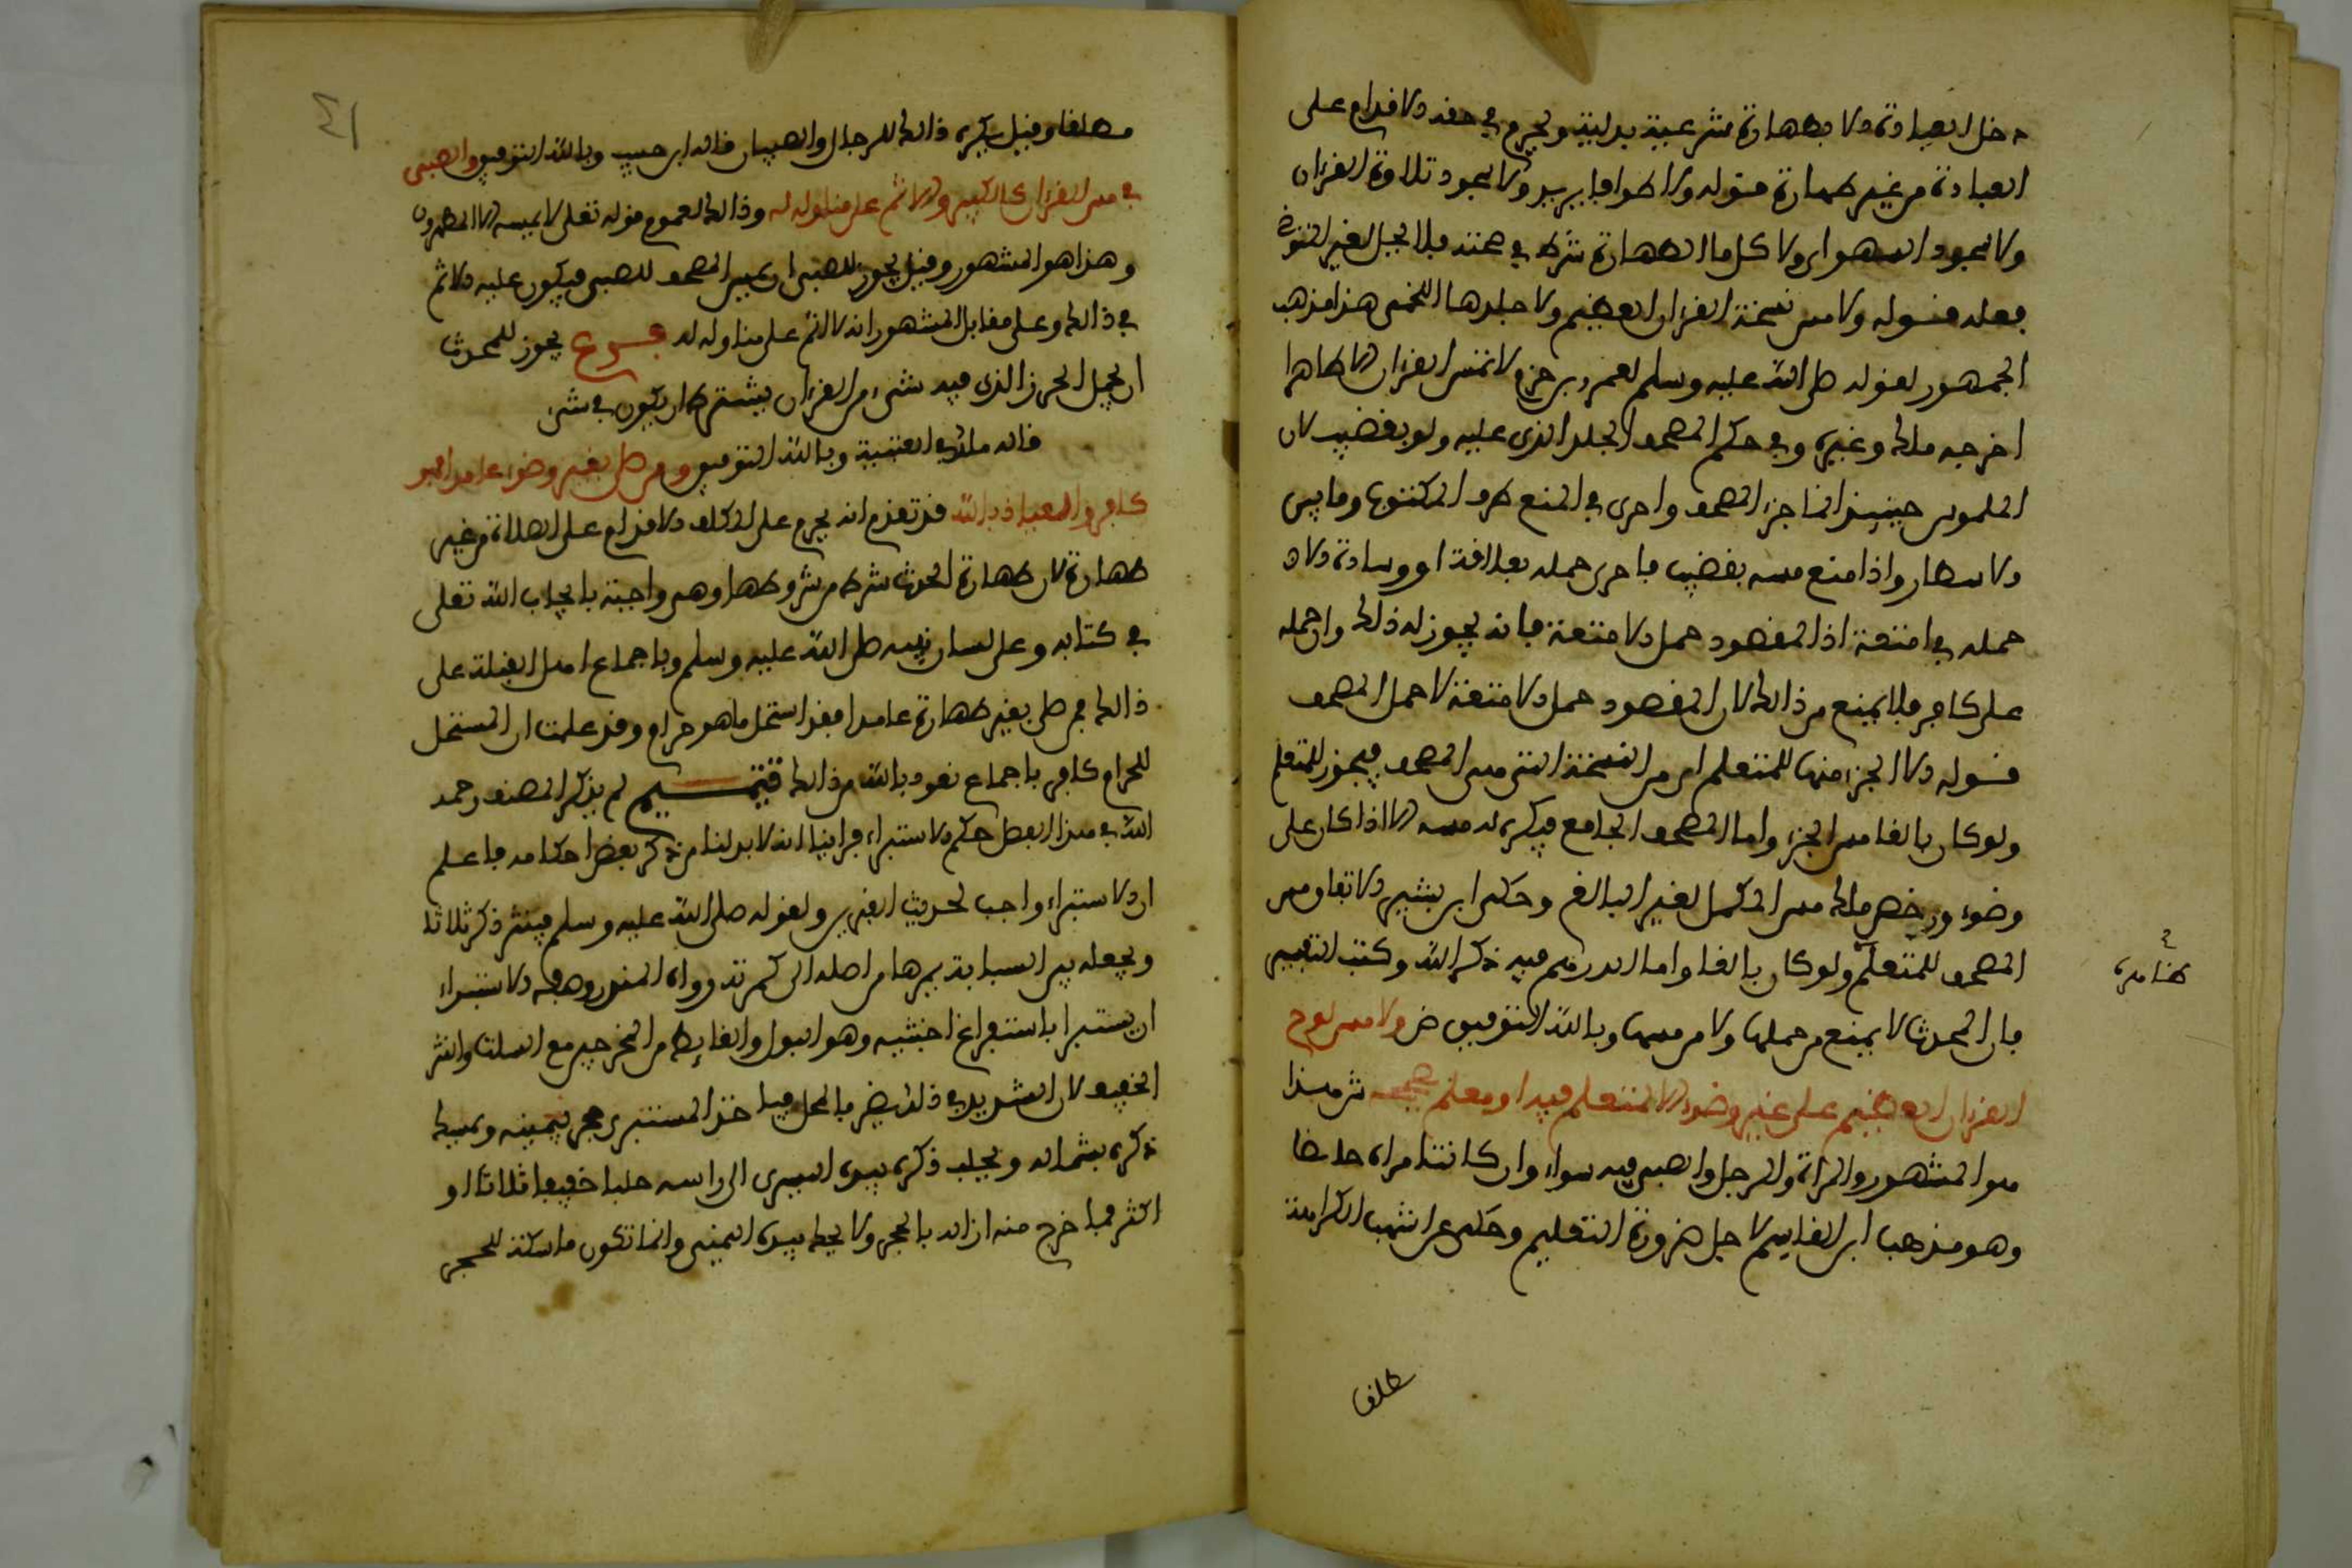 دخل العبادة الا بطهارة شرعية بدلية ويحرم في حقه الاقدام على
العبادة من غير طهارة قوله ولا طواف ولا سجود تلاوة القرءان
ولا سجود السهو اي ولا كل ما الطهارة شرط في صحته فلا يحل لغير المتوضئ
فعله قوله ولا مس نسخة القرءان العظيم ولا جلدها اللخمي هذا مذهب
الجمهور لقوله صلى الله عليه وسلم لعمرو بن حزم لا تمس القرءان الا طاهرا
اخرجه ملك وغيره وفي حكم المصحف الجلد الذي عليه ولو بقضيب لان
الملموس حينئذ انما جزء المصحف واحرى في المنع طرف المكتوب وما بين
الاسطار واذا منع مسه بقضيب فاحرى حمله بعلاقة او وسادة الا
حمله في امتعة اذا المقصود حمل الامتعة فانه يجوز له ذلك وان حمله
على كافر فلا يمنع من ذلك لان المقصود حمل الامتعة لا حمل المصحف
قوله الا الجزء منها للمتعلم اي من النسخة التي من المصحف فيجوز للمتعلم
ولو كان بالغا مس الجزء واما المصحف الجامع فيكره له مسه الا اذا كان على
وضوء ورخص ملك مس المكمل لغير البالغ وحكى ابن بشير الاتفاق مس
المصحف للمتعلم ولو كان بالغا واما الدرهم فيه ذكر الله وكتب التفسير
فان المحدث لا يمنع من حملها ولا من مسها وبالله التوفيق ض ولا مس لوح
القرءان العظيم على غير وضوء الا لمتعلم فيه او معلم يصححه ش هذا
هو المشهور والمراة والرجل والصبي فيه سواء وان كانت امراة حائضا
وهو مذهب ابن القاسم لاجل ضرورة التعليم وحكى عن اشهب الكراهة
مطلقا وقيل يكره ذلك للرجال والصبيان قاله ابن حبيب وبالله التوفيق والصبي
في مس القرءان كالكبير والاثم على مناوله له وذلك لعموم قوله تعلى لا يمسه الا المطهرون
وهذا هو المشهور وقيل يجوز للصبي ان يمس المصحف للصبي فيكون عليه الاثم
في ذلك وعلى مقابل المشهور انه لا اثم على مناوله له فرع يجوز للمحدث
ان يحمل الحرز الذي فيه شيء من القرءان بشرط ان يكون في شيء
قاله ملك في العتبية وبالله التوفيق ومن صلى بغير وضوء عامدا فهو
كافر والعياذ بالله قد تقدم انه يحرم على المكلف الاقدام على الصلاة من غير
طهارة لان طهارة الحدث شرط من شروطها وهي واجبة بايجاب الله تعلى
في كتابه وعلى لسان نبيه صلى الله عليه وسلم وباجماع اهل القبلة على
ذلك فمن صلى بغير طهارة عامدا فقد استحل ما هو حرام وقد علمت ان المستحل
للحرام كافر باجماع نعوذ بالله من ذلك تتميم لم يذكر المصنف رحمه
الله في هذا الفصل حكم الاستبراء فراينا انه لا بد لنا من ذكر بعض احكامه فاعلم
ان الاستبراء واجب لحديث القبرين ولقوله صلى الله عليه وسلم فينثر ذكره ثلاثا
ويجعله بين السبابة يمرها من اصله الى كمرته رواه المنور وصفة الاستبراء
ان يستبرا باستفراغ اخبثيه وهو البول والغايط من المخرجين مع السلت والنثر
الخفيف لان التشديد في ذلك يضر بالمحل فياخذ المستبرئ حجر بيمينه ويمسك
ذكره بشماله ويجلب ذكره بيده اليسرى الى راسه جلبا خفيفا ثلاثا او
اكثر فما خرج منه ازاله بالحجر ولا يحك بيده اليمنى وانما تكون ماسكة للحجر
طلقا